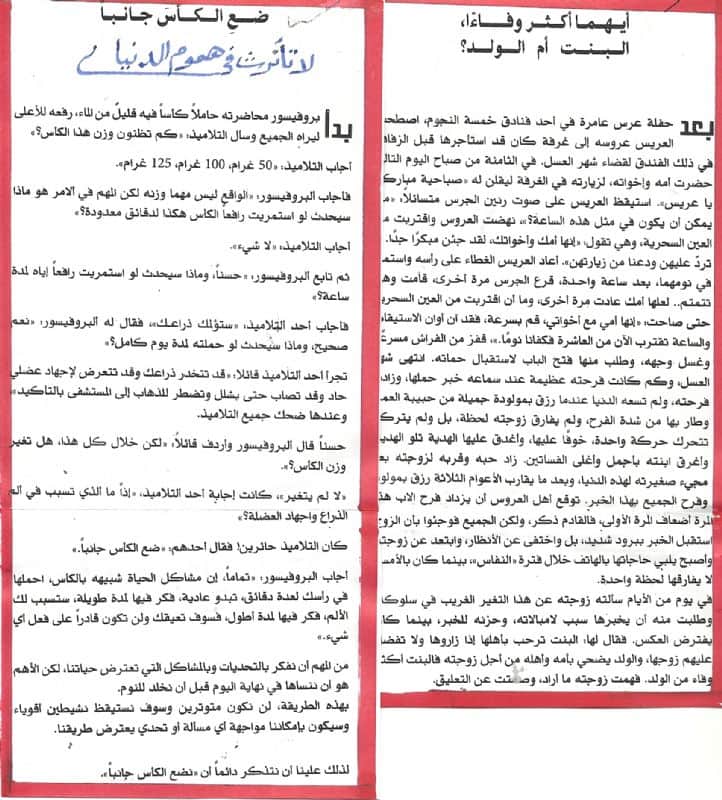 أيهما أكثر وفاءًا،
البنت أم الولد؟
بعد حفلة عرس عامرة في أحد فنادق خمسة النجوم، اصطحب
العريس عروسه إلى غرفة كان قد استأجرها قبل الزفاف
في ذلك الفندق لقضاء شهر العسل. في الثامنة من صباح اليوم التالي
حضرت أمه وإخواته، لزيارته في الغرفة ليقلن له «صباحية مباركة
يا عريس». استيقظ العريس على صوت رنين الجرس متسائلاً،
يمكن أن يكون في مثل هذه الساعة؟»، نهضت العروس واقتربت
العين السحرية، وهي تقول، «إنها أمك وأخواتك، لقد جئن مبكرًا جدًا.
تردّ عليهن ودعنا من زيارتهن». أعاد العريس الغطاء على رأسه
في نومهما، بعد ساعة واحدة، قرع الجرس مرة أخرى، قامت
تتمتم.. لعلها أمك عادت مرة أخرى، وما أن اقتربت من العين السحرية
حتى صاحت؛ «إنها أمي مع أخواتي، قم بسرعة، فقد آن أوان
والساعة تقترب الآن من العاشرة فكفانا نومًا.». قفز من الفراش
وغسل وجهه، وطلب منها فتح الباب لاستقبال حماته. انتهى
العسل، وكم كانت فرحته عظيمة عند سماعه خبر حملها،
فرحته، ولم تسعه الدنيا عندما رزق بمولودة جميلة من حبيبة
وطار بها من شدة الفرح، ولم يفارق زوجته لحظة، بل ولم
تتحرك حركة واحدة، خوفًا عليها، وأغدق عليها الهدية تلو
وأغرق ابنته بأجمل وأغلى الفساتين. زاد حبه وقربه لزوجته
مجيء صغيرته لهذه الدنيا، وبعد ما يقارب الأعوام الثلاثة رزق
وفرح الجميع بهذا الخبر. توقع أهل العروس أن يزداد فرح الاب
المرة أضعاف المرة الأولى، فالقادم ذكر، ولكن الجميع فوجئوا بأن
استقبل الخبر ببرود شديد، بل واختفى عن الأنظار، وابتعد عن
وأصبح يلبي حاجاتها بالهاتف خلال فترة «النفاس»، بينما كان
لا يفارقها لحظة واحدة.
في يوم من الأيام سألته زوجته عن هذا التغير الغريب في
وطلبت منه أن يخبرها سبب لامبالاته، وحزنه للخبر، بينما
يفترض العكس. فقال لها، البنت ترحب بأهلها إذا زاروها ولا
عليهم زوجها، والولد يضحي بأمه وأهله من أجل زوجته فالبنت أكثر
وفاء من الولد. فهمت زوجته ما أراد، وصمتت عن التعليق.
ضع الكأسَ جانباً
لا تأثرت في هموم الدنيا
بدأ بروفيسور محاضرته حاملاً كأساً فيه قليلٌ من الماء، رفعه للأعلى
ليراه الجميع وسأل التلاميذ، «كم تظنون وزن هذا الكأس؟»
أجاب التلاميذ، «50 غرام، 100 غرام، 125 غرام».
فأجاب البروفيسور؛ «الواقع ليس مهما وزنه لكن المهم في الامر هو ماذا
سيحدث لو استمريت رافعاً الكأس هكذا لدقائق معدودة؟»
أجاب التلاميذ، «لا شيء».
ثم تابع البروفيسور، «حسناً، وماذا سيحدث لو استمريت رافعاً إياه لمدة
ساعة؟»
فأجاب أحد التلاميذ، «ستؤلك ذراعك»، فقال له البروفيسور، «نعم
صحيح، وماذا سيحدث لو حملته لمدة يوم كامل؟»
تجرأ أحد التلاميذ قائلا، «قد تتخدر ذراعك وقد تتعرض لإجهاد عضلي
حاد وقد تصاب حتى بشلل وتضطر للذهاب إلى المستشفى بالتأكيد»،
وعندها ضحك جميع التلاميذ.
حسناً قال البروفيسور وأردف قائلاً، «لكن خلال كل هذا، هل تغير
وزن الكأس؟».
«لا لم يتغير»، كانت إجابة أحد التلاميذ، «إذاً ما الذي تسبب في ألم
الذراع واجهاد العضلة؟»
كان التلاميذ حائرين! فقال أحدهم؛ «ضع الكأس جانباً.»
أجاب البروفيسور، «تماماً، إن مشاكل الحياة شبيهه بالكاس، احملها
في راسك لعدة دقائق، تبدو عادية، فكر فيها لمدة طويلة، ستسبب لك
الألم، فكر فيها لمدة أطول، فسوف تعيقك ولن تكون قادراً على فعل أي
شيء.»
من المهم أن نفكر بالتحديات وبالمشاكل التي تعترض حياتنا، لكن الأهم
هو أن ننساها في نهاية اليوم قبل أن نخلد للنوم.
بهذه الطريقة، لن نكون متوترين وسوف نستيقظ نشيطين أقوياء
وسيكون بإمكاننا مواجهة أي مسألة أو تحدي يعترض طريقنا.
لذلك علينا أن نتذكر دائماً أن «نضع الكاس جانباً».